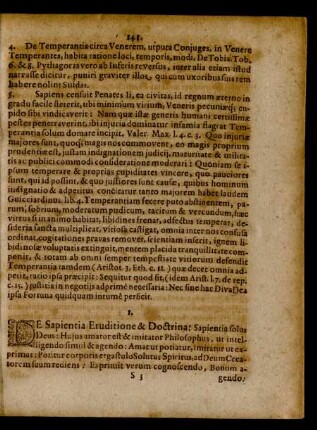 141.
4. De Temperantia circa Venerem, utputa Conjuges, in Venere
Temperantes, habita ratione loci, temporis, modi. De Tobia. Tob.
6. & 8. Pythagoras vero ab Inferis reversus, inter alia etiam istud
narrasse dicitur, puniri graviter illos, qui cum uxoribus suis rem
habere nolint Suidas.
5. Sapiens censuit Penates Ii, ea civitas, id regnum æterno in
gradu facile steterit, ubi minimum virium, Veneris pecuniæq; cu-
pido sibi vindicaverit: Nam quæ istæ generis humani certissimæ
pestes penetraverint, ibi injuria dominatur infamia flagrat Tem-
perantia solum domare incipit. Valer. Max. l. 4. c. 3. Quo injuriæ
majores sunt, quoq; magis nos commovent, eo magis proprium
prudentis est, justam indignationem judicij, maturitate & utilita-
tis ac publici commodi consideratione moderari: Quoniam se i-
psum temperare & proprias cupiditates vincere, quo pauciores
sunt, qui id possint, & quo justiores sunt causæ, quibus hominum
indignatio & adpetitus concitatur tanto majorem habet laudem
Guicciardinus. lib. 4. Temperantiam secere puto abstinentem, pa-
rum, sobrium, moderatum pudicum, tacitum & verecundum, hæc
virtus si in animo habitat, libidines frenat, adfectus temperat, de-
sideria sancta multiplicat, vitiosa castigat, omnia inter nos confusa
ordinat, cogitationes pravas removet, scientiam inserit, ignem li-
bidinosæ voluptatis extinguit, mentem placida tranquillitate com-
ponit, & totam ab omni semper tempestate vitiorum defendit
Temperantia tamdem (Aristot. 3. Eth. c. 11.) quæ decet omnia ad-
petit, ratio ipsa præcipit: Sequitur quod sit, (idem Arist. l. 7. de rep.
c. 15.) justitia in negotijs adprimè necessaria: Nec sine hac Diva Dea
ipsa Fortuna quidquam intumè perficit.
1.
DE Sapientia Eruditione & Doctrina: Sapientia solus
Deus: Hujus amator est & imitator Philosophus, ut intel-
ligendo simul & agendo: Amat ut potiatur, imitatur ut ex-
primat: Potitur corporis ergastulo Solutus Spiritus, ad Deum Crea-
torem suum rediens: Exprimit verum cognoscendo, Bonum a-
S 3 gendo: